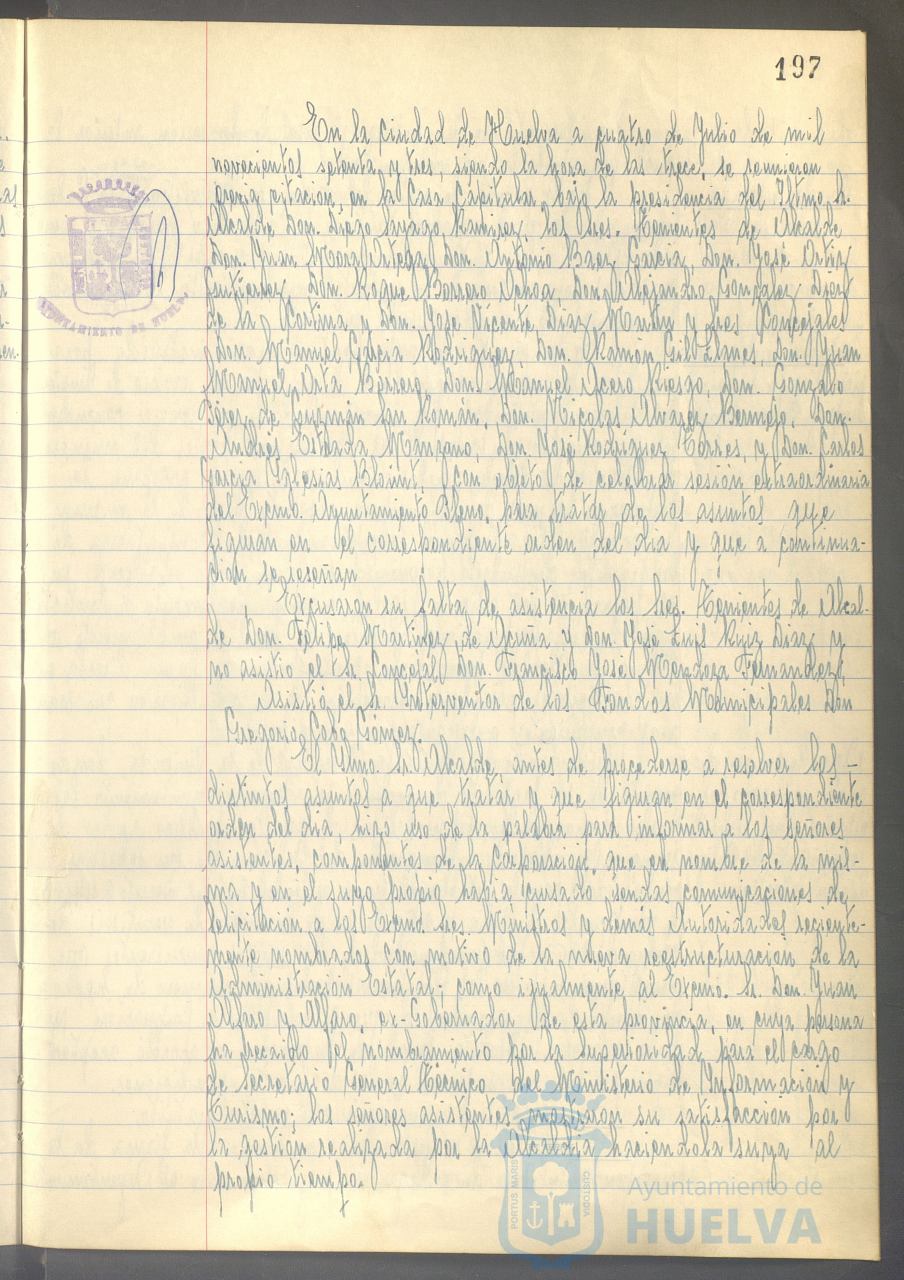 197
En la ciudad de Huelva a cuatro de Julio de mil
novecientos setenta y tres, siendo la hora de las trece, se reunieron
previa citación, en la Casa Capitular bajo la presidencia del Iltmo. Sr.
Alcalde Don Diego Sayago Ramirez, los Sres. Tenientes de Alcalde
Don Juan Mora Ortega, Don Antonio Baez Garcia, Don José Ortiz
Gutierrez, Don Roque Borrero Ochoa, Don Alejandro Gonzalez Diez
de la Cortina y Don José Vicente Diaz Martin y Sres Concejales
Don Manuel Garcia Rodriguez, Don Ramón Gil Llanes, Don Juan
Manuel Orta Borrero, Don Manuel Acero Riesgo, Don Gonzalo
Perez de Guzmán San Román, Don Nicolas Alvarez Bermejo, Don
Andres Estrada Manzano, Don José Rodriguez Torres, y Don Carlos
Garcia Iglesias con objeto de celebrar sesión extraordinaria
del Excmo. Ayuntamiento Pleno, para tratar de los asuntos que
figuran en el correspondiente orden del dia y que a continua-
ción se reseñan
Excusaron su falta de asistencia los Sres. Tenientes de Alcal-
de Don Felipe Martinez de Acuña y Don José Luis Ruiz Diaz y
no asistio el Sr. Concejal Don Francisco José Mendoza Fernandez.
Asistió el Sr. Interventor de los Fondos Municipales Don
Gregorio Gómez.
El Iltmo. Sr Alcalde, antes de procederse a resolver los –
distintos asuntos a que tratar y que figuran en el correspondiente
orden del dia, hizo uso de la palabra para informar a los señores
asistentes, componentes de la Corporación, que en nombre de la mis-
ma y en el suyo propio habia cursado sendas comunicaciones de
felicitación a los Excmo. Sres. Ministros y demás Autoridades reciente-
mente nombrados con motivo de la nueva reestructuración de la
Administración Estatal; como igualmente al Excmo. Sr. Don Juan
Alfaro y Alfaro, ex-Gobernador de esta provincia, en cuya persona
ha recaido el nombramiento por la Superioridad para el cargo
de Secretario General Técnico del Ministerio de Información y
Turismo; los señores asistentes mostraron su satisfacción por
la gestión realizada por la Alcaldia haciendola suya al
propio tiempo.
AYUNTAMIENTO DE HUELVA
PORTUS MARIS
CUSTODIA
Ayuntamiento de
HUELVA